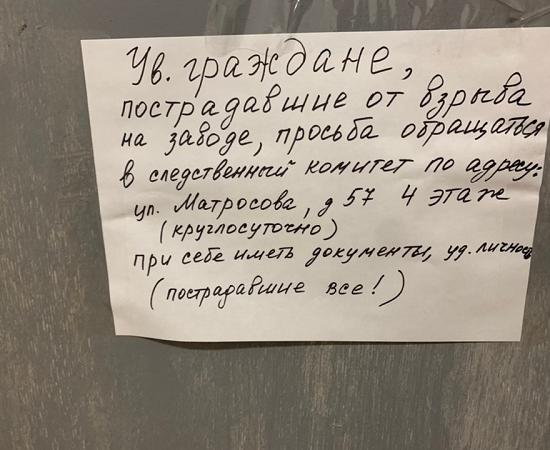 Ув. граждане,
пострадавшие от взрыва
на заводе, просьба обращаться
в следственный комитет по адресу:
ул. Матросова, д 57 4 этаж
(круглосуточно)
при себе иметь документы, уд. личность
(пострадавшие все!)